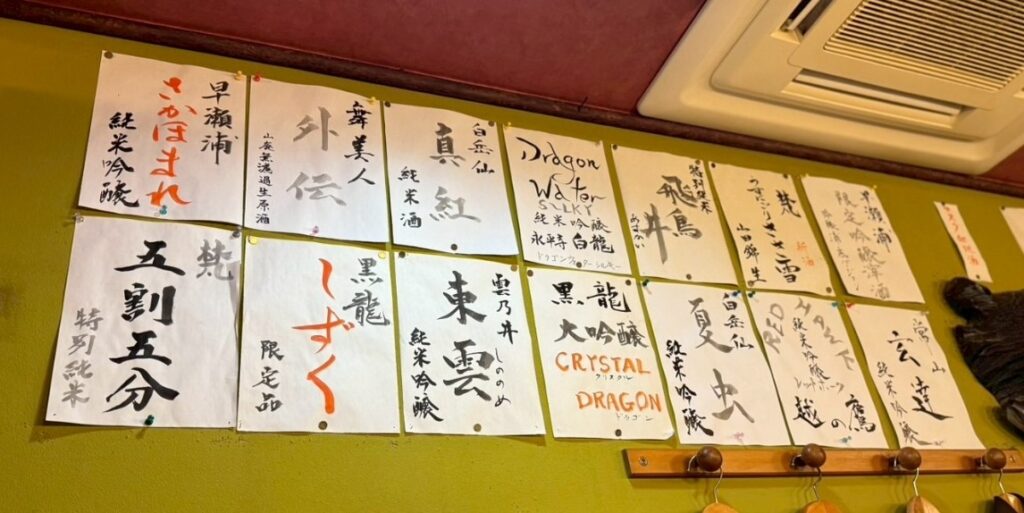 早瀬浦
さかほまれ
純米吟醸
舞美人
外伝
山廃無濾過生原酒
白岳仙
真紅
純米酒
Dragon
Water
SILKY
純米吟醸
永平寺白龍
ドラゴンウォーターシルキー
特別純米
飛鳥井
あすかい
梵
うすにごりささ雪
新酒
山田錦 生
早瀬浦
限定吟醸澤酒
梵
五割五分
特別純米
黒龍
しずく
限定品
雲乃井
しののめ
東雲
純米吟醸
黒龍
大吟醸
CRYSTAL
クリスタル
DRAGON
ドラゴン
白岳仙
夏虫
純米吟醸
RED
純米吟醸
越の鷹
常山
玄達
純米吟醸